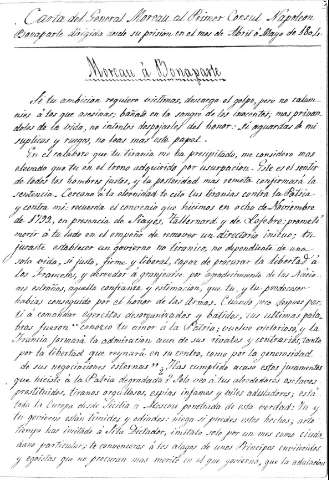 Carta del General Moreau al Primer Consul Napoleon
Bonaparte dirigida desde su prision en el mes de Abril o Mayo de 1804.
Moreau á Bonaparte
Si tu ambicion requiere victimas, descarga el golpe, pero no calum-
nies á los que asesinas; báñate en la sangre de los inocentes; mas privan
doles de la vida, no intentes despojarlos del honor: Si aguardas de mi
suplicas y ruegos, no leas mas este papel.
En el calabozo que tu tirania me ha precipitado, me considero mas
elevado que tu en el trono adquirido por usurpacion. Este es el sentir
de todos los hombres justos, y la posteridad mas remota confirmará la
sentencia. Cercano á la eternidad te cito tus tiranias contra la Patria
y contra mi: recuerda el convenio que hicimos en ocho de Noviembre
de 1792, en presencia de Hayes, y de Lefebre: prometí
morir á tu lado en el empeño de remover un directorio inicuo; tu
juraste establecer un gobierno no tiranico, no dependiente de una
sola vida, si justo, firme y liberal, capaz de procurar la libertad á
los Franceses, y acreedor á grangearse por agradecimiento de las Nacio-
nes estrañas, aquella confianza y estimacion, que tu, y tu predecesor
habias conseguido por el honor de las Armas. Cuando
á comandar ejercitos desorganizados y batidos, sus ultimas pala-
bras fueron "conozco tu amor á la Patria; vuelve victorioso, y la
Francia formará la admiracion aun de sus rivales y contrarios, tanto
por la libertad que reynará en su centro, como por la generosidad
de sus negociaciones esternas" ¿Has cumplido acaso estos juramentos
que hiciste á la Patria degradada? Solo ves á tus alrededores esclavos
prostituidos, tiranos orgullosos, espias infames y viles aduladores; está
toda la Europa desde Sicilia á Moscou penetrada de esta verdad: tu y
tu gobierno estan limites, y odiados: niega si puedes estos hechos; a tu
tiempo has imitado á Sila Dictador, imitalo solo por un mes como ciuda-
dano particular; te convenceras á los alagos de unos Principes envilecidos
y egoistas que no procuran mas merito en el que gobierna, que la adulacion